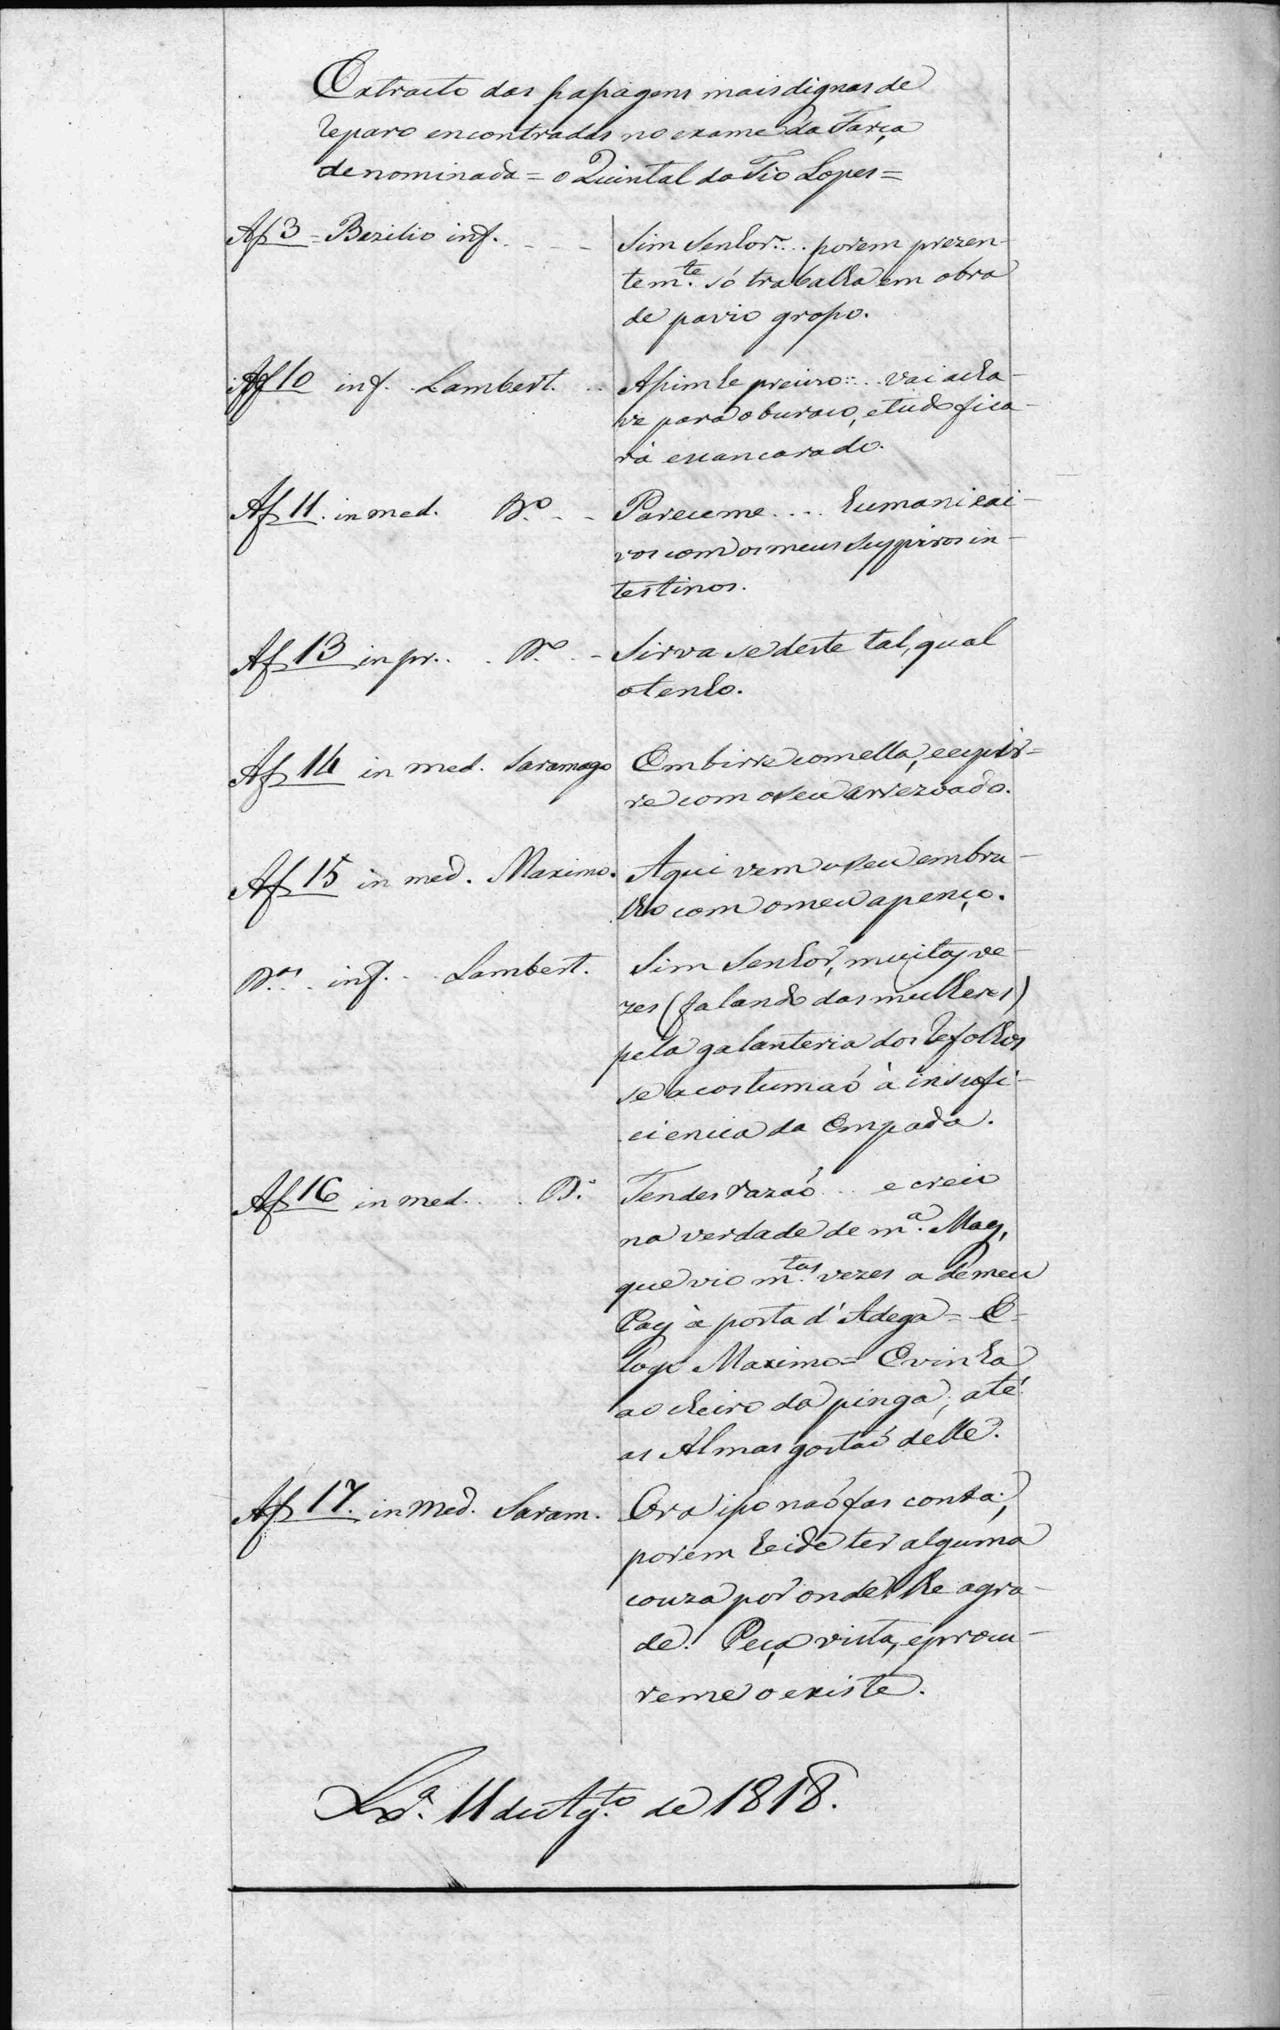 Extracto das passagens mais dignas de
reparo encontradas no exame da Farça
denominada = o Quintal do Tio Lopes =
Af 3 = Bazilio inf. - - - Sim Senhor... porem prezen-
tem.te só trabalha em obra
de pavio grosso.
Af 10 inf. Lambert. .. Assim he precizo... vai a cha-
ve para o buraco, e tudo fica-
rá escancarado.
Af 11. in med. D.o - - Pareceme .... humanizai-
vos com os meus suspiros in-
testinos.
Af 13 in pr. . D.o - Sirva se deste tal, qual
o tenho.
Af 14 in med. Saramago Embirre com ella, e espir-
re com o seu arrezoado.
Af 15 in med. Maximo. Aqui vem o seu embru-
lho com o meu apenço.
D.as inf. Lambert. Sim Senhor, muitas ve-
zes (falando das mulheres)
pela galanteria dos refolhos
se acostumaõ à insufi-
ciencia da Empada.
Af 16 in med. . D.o Tendes razaõ ... e creio
na verdade de m.a May,
que vio m.tas vezes a de meu
Pay à porta d'Adega = E
logo Maximo = E vinha
ao cheiro da pinga; até
as Almas gostaõ delle.
Af 17. in med. Saram. Ora isso naõ fas conta;
porem hei de ter alguma
couza por onde lhe agra-
de. Peça vista, e procu-
reme o existe.
Lx.a 11 de Ag.to de 1818.